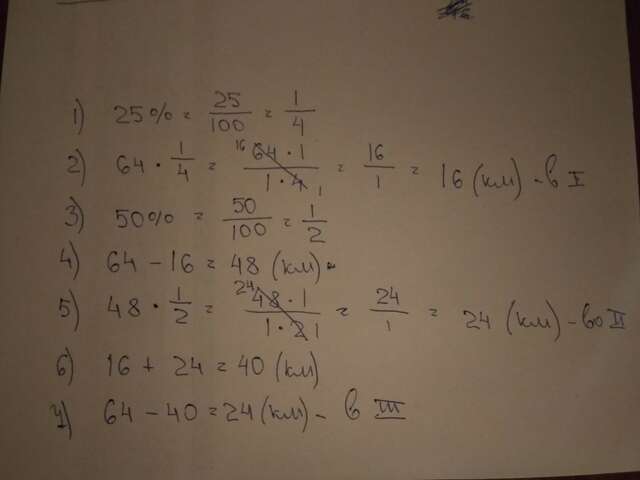 1) 25% = 25/100 = 1/4
2) 64 · 1/4 = 16 64 · 1/1 · 4 1 = 16/1 = 16 (км) - в I
3) 50% = 50/100 = 1/2
4) 64 - 16 = 48 (км) -
5) 48 · 1/2 = 24 48 · 1/1 · 2 1 = 24/1 = 24 (км) - во II
6) 16 + 24 = 40 (км)
7) 64 - 40 = 24 (км) - в III